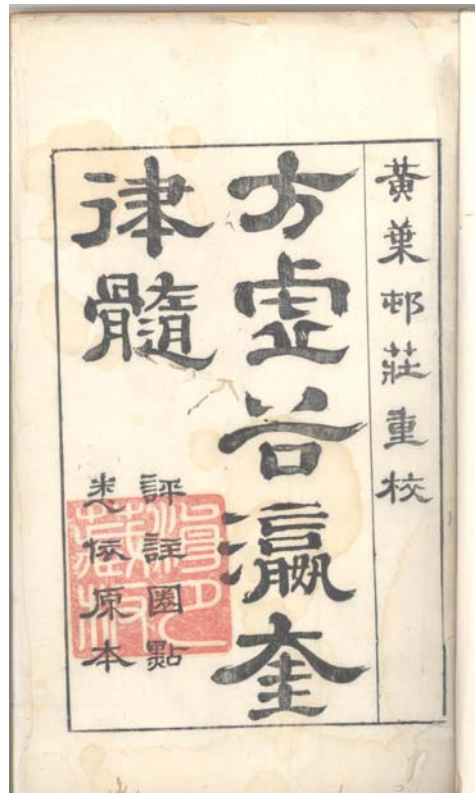 黃葉邨莊重校
方虛谷瀛奎
律髓
評註圈點
悉依原本